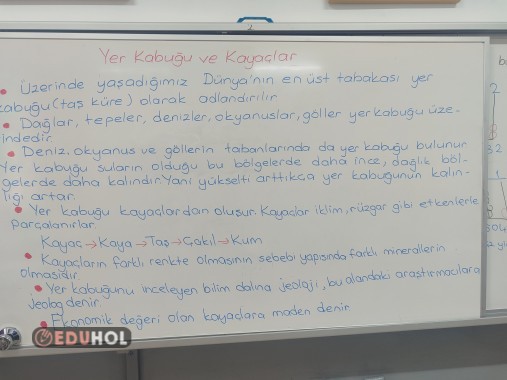 Yer Kabuğu ve Kayaçlar
• Üzerinde yaşadığımız Dünya'nın en üst tabakası yer
kabuğu (taş küre) olarak adlandırılır
• Dağlar, tepeler, denizler, okyanuslar, göller yer kabuğu üze-
indedir
• Deniz, okyanus ve göllerin tabanlarında da yer kabuğu bulunur
Yer kabuğu suların olduğu bu bölgelerde daha ince, dağlık böl-
gelerde daha kalındır. Yani yükselti arttıkça yer kabuğunun kalın-
lığı artar.
• Yer kabuğu kayaçlardan oluşur. Kayaçlar iklim, rüzgar gibi etkenlerle
parçalanırlar.
Kayaç→Kaya→Taş→Çakıl→Kum
• Kayaçların farklı renkte olmasının sebebi yapısında farklı minerallerin
olmasıdır.
• Yer kabuğunu inceleyen bilim dalına jeoloji, bu alandaki araştırmacılara
jeolog denir
• Ekonomik değeri olan kayaçlara maden denir
EDUHOL